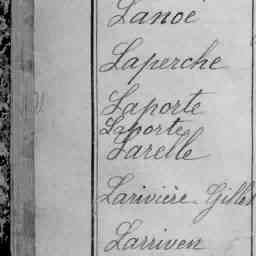 Lanoë
Laperche
Laporte
Laporte
Larelle
Larivière Gilles
Larriven